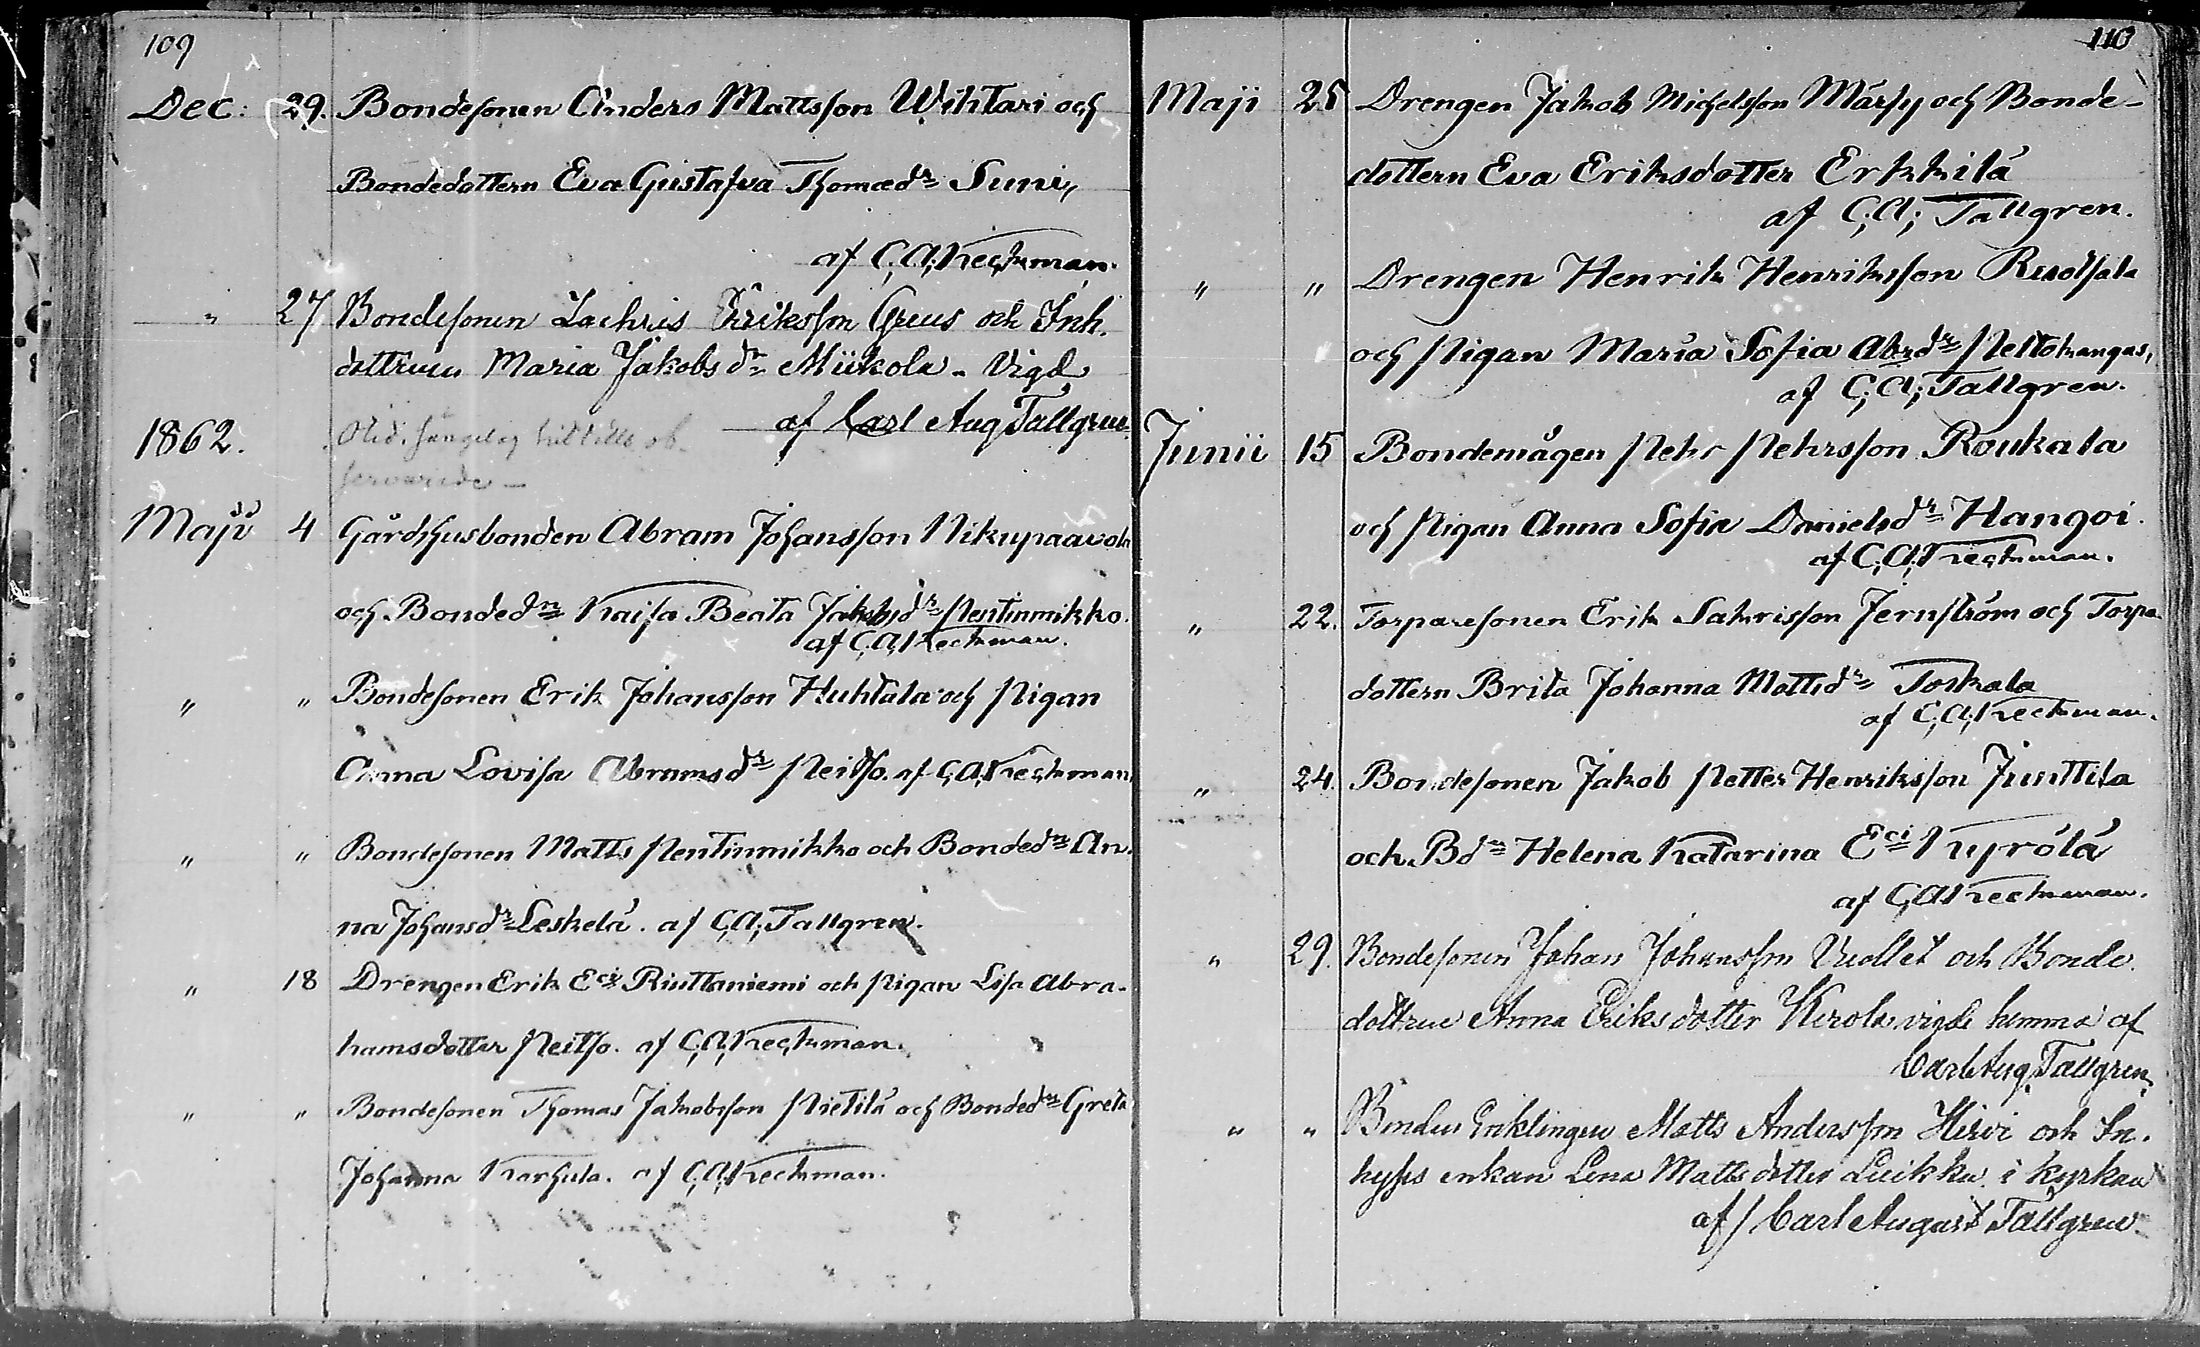 109
Dec: 29. Bondesonen Anders Mattsson Wihtari och
Bondedottern Eva Gustafva Thomædr Suni,
af C; A; Keckman.
" 27 Bondesonen Zachris Eriksson Greus och Inh.
dottren Maria Jakobs dr Miikola - Vigd
af Carl Aug Tallgren.
1862.
Maji 4 Gårdshusbonden Abram Johansson Nikupaavola
och Bondedn Kaisa Beata Jakobsdr Pentinmikko.
af C; A; Keckman.
" " Bondesonen Erik Johansson Huhtala och Pigan
Anna Lovisa Abramsdr Peitso. af C; A; Keckman.
" " Bondesonen Matts Pentinmikko och Bondedn An-
na Johansdr Leskelä. af C; A; Tallgren.
" 18 Drengen Erik Eci Riuttaniemi och Pigan Lisa Abra-
hamsdotter Peitso. af C; A; Keckman.
" " Bondesonen Thomas Jakobsson Pietilä och Bondedn Greta
Johanna Karhula. af C; A; Keckman.
110
Maji 25 Drengen Jakob Michelsson Märsy och Bonde-
dottern Eva Eriksdotter Erkkilä
af C; A; Tallgren.
" " Drengen Henrik Henriksson Ruotsala
och Pigan Maria Sofia Abrdr Peltokangas,
af C; A; Tallgren.
Junii 15 Bondemågen Pehr Pehrsson Roukala
och Pigan Anna Sofia Danielsdr Hangoi.
af C; A; Keckman.
" 22. Torparesonen Erik Sakrisson Jernström och Torpa-
dottern Brita Johanna Mattsdr Torkala
af C; A; Keckman.
" 24. Bondesonen Jakob Petter Henriksson Junttila
och Bdn Helena Katarina Eci Kyrölä
af C; A; Keckman.
" 29. Bondesonen Johan Johansson Vuollet och Bonde-
dottren Anna Eriks dotter Kerola vigde hemma af
Carl Aug. Tallgren.
" " Bonden Enklingen Matts Andersson Hirvi och In-
hyses enkan Lena Matts dotter Luikku i kyrkan
af / Carl August Tallgren